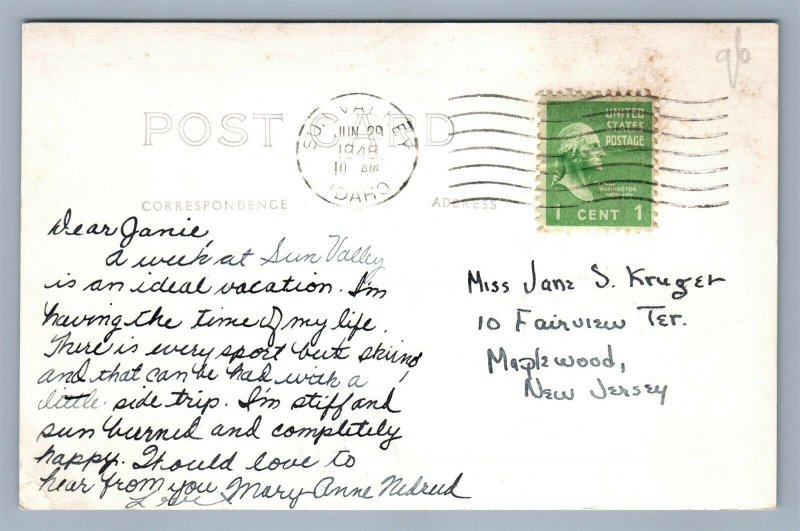 96
POST CARD
SUN VALLEY
JUN 29
1948
10 AM
IDAHO
UNITED
STATES
POSTAGE
WASHINGTON
1 CENT 1
CORRESPONDENCE
ADDRESS
Dear Janie,
A week at Sun Valley
is an ideal vacation. I'm
having the time of my life.
There is every sport but skiing,
and that can be had with a
little side trip. I'm stiff and
sun burned and completely
happy. I would love to
hear from you
Love Mary Anne Nedrud
Miss Jane S. Kruger
10 Fairview Ter.
Maplewood,
New Jersey